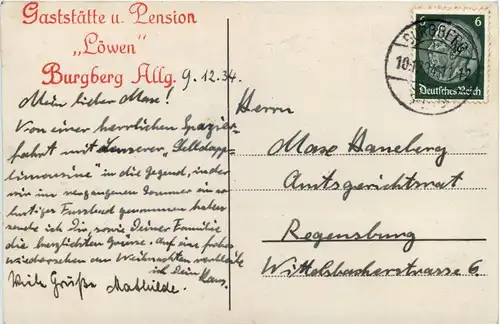 Gaststätte u. Pension
„Löwen"
Burgberg Allg.
9.12.34.
Mein lieber Max!
Von einer herrlichen Spazier-
fahrt mit unserer
limousine" in die Gegend, in der
wir im vergangenen Sommer ein so
lustiges Fussbad genommen haben
sende ich Dir, sowie Deiner Familie
die herzlichsten Grüsse. Auf ein frohes
wiedersehen an Weihnachten verbleibe
ich Dein Hans.
Viele Grüße Mathilde.
6 6
Deutsches Reich
BURGBERG
Herrn
Max Haneberg
Amtsgerichtsrat
Regensburg
Wittelsbacherstrasse 6.